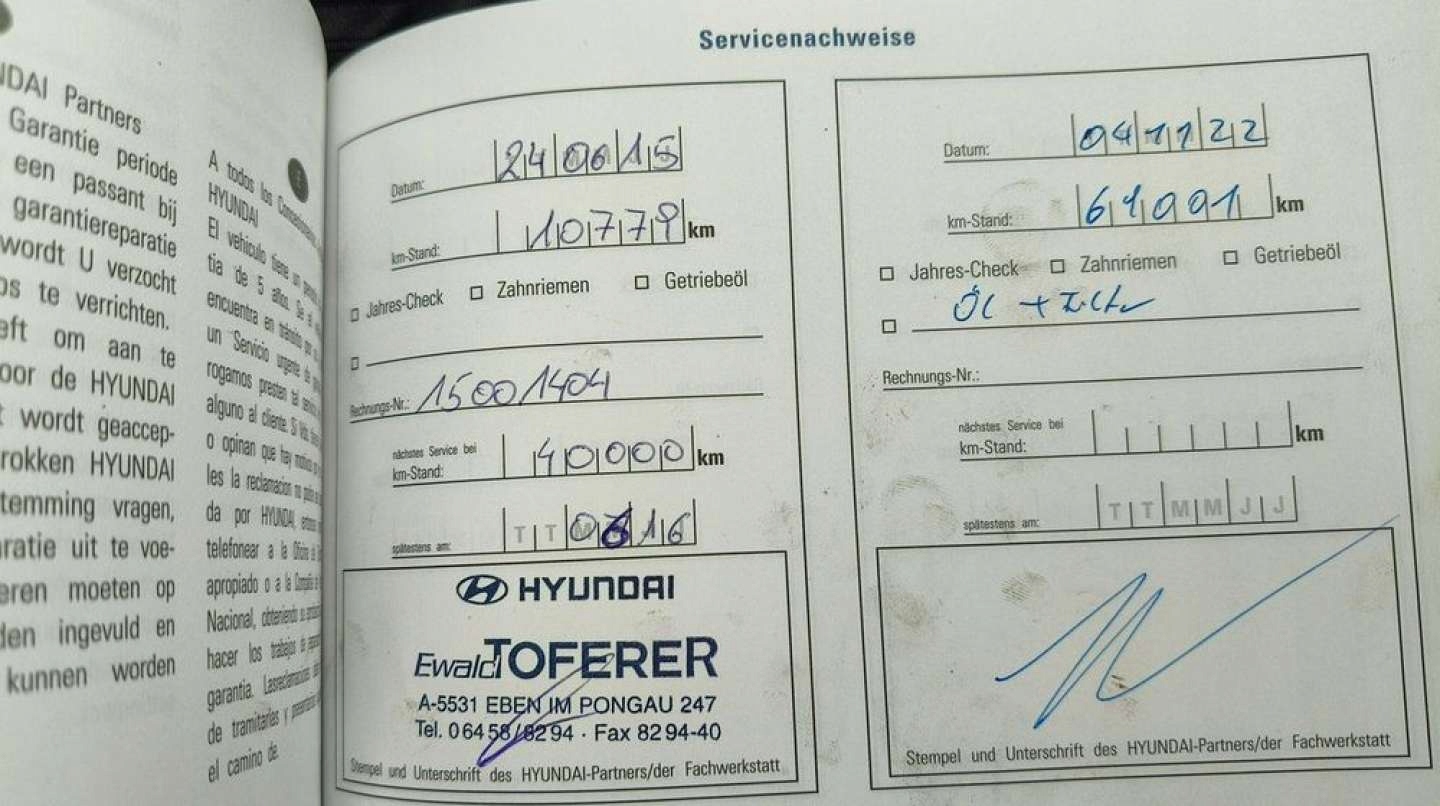 NDAI Partners
Garantie periode
een passant bij
garantiereparatie
wordt U verzocht
os te verrichten.
eft om aan te
oor de HYUNDAI
t wordt geaccep-
rokken HYUNDAI
temming vragen,
ratie uit te voe-
eren moeten op
den ingevuld en
kunnen worden
A todos los
HYUNDAI
El vehiculo tiene un
tia de 5 años. Se
encuentra en tránsito por
un Servicio urgente de
rogamos presten tal servicio
alguno al cliente. Si
o opinan que hay
les la reclamacion no
da por HYUNDAI,
telefonear a la
apropiado o a la
Nacional, obteniendo su
hacer los trabajos de
garantia.
de tramitarles y
el camino de.
Servicenachweise
Datum: 240615
km-Stand: 10779 km
Jahres-Check Zahnriemen Getriebeöl
Rechnungs-Nr.: 15001404
nächstes Service bei
km-Stand: 40000 km
spätestens am: T T 06 16
HYUNDAI
Ewald TOFERER
A-5531 EBEN IM PONGAU 247
Tel. 06458/8294 · Fax 8294-40
Stempel und Unterschrift des HYUNDAI-Partners/der Fachwerkstatt
Datum: 041122
km-Stand: 61001 km
Jahres-Check Zahnriemen Getriebeöl
Öl +
Rechnungs-Nr.:
nächstes Service bei
km-Stand: km
spätestens am: T T M M J J
Stempel und Unterschrift des HYUNDAI-Partners/der Fachwerkstatt